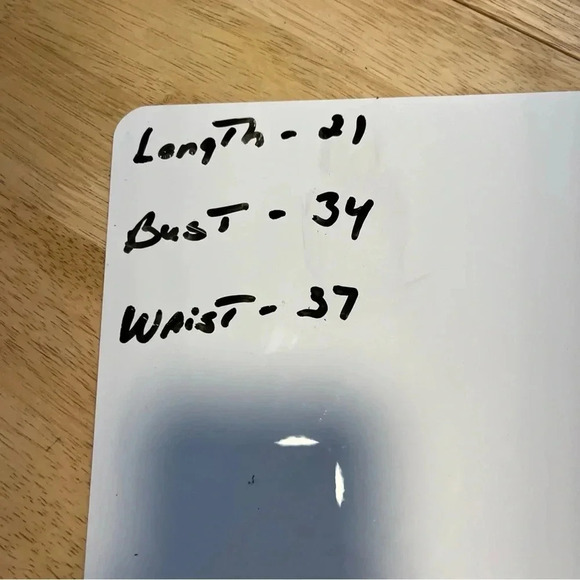 Length - 21
Bust - 34
Waist - 37